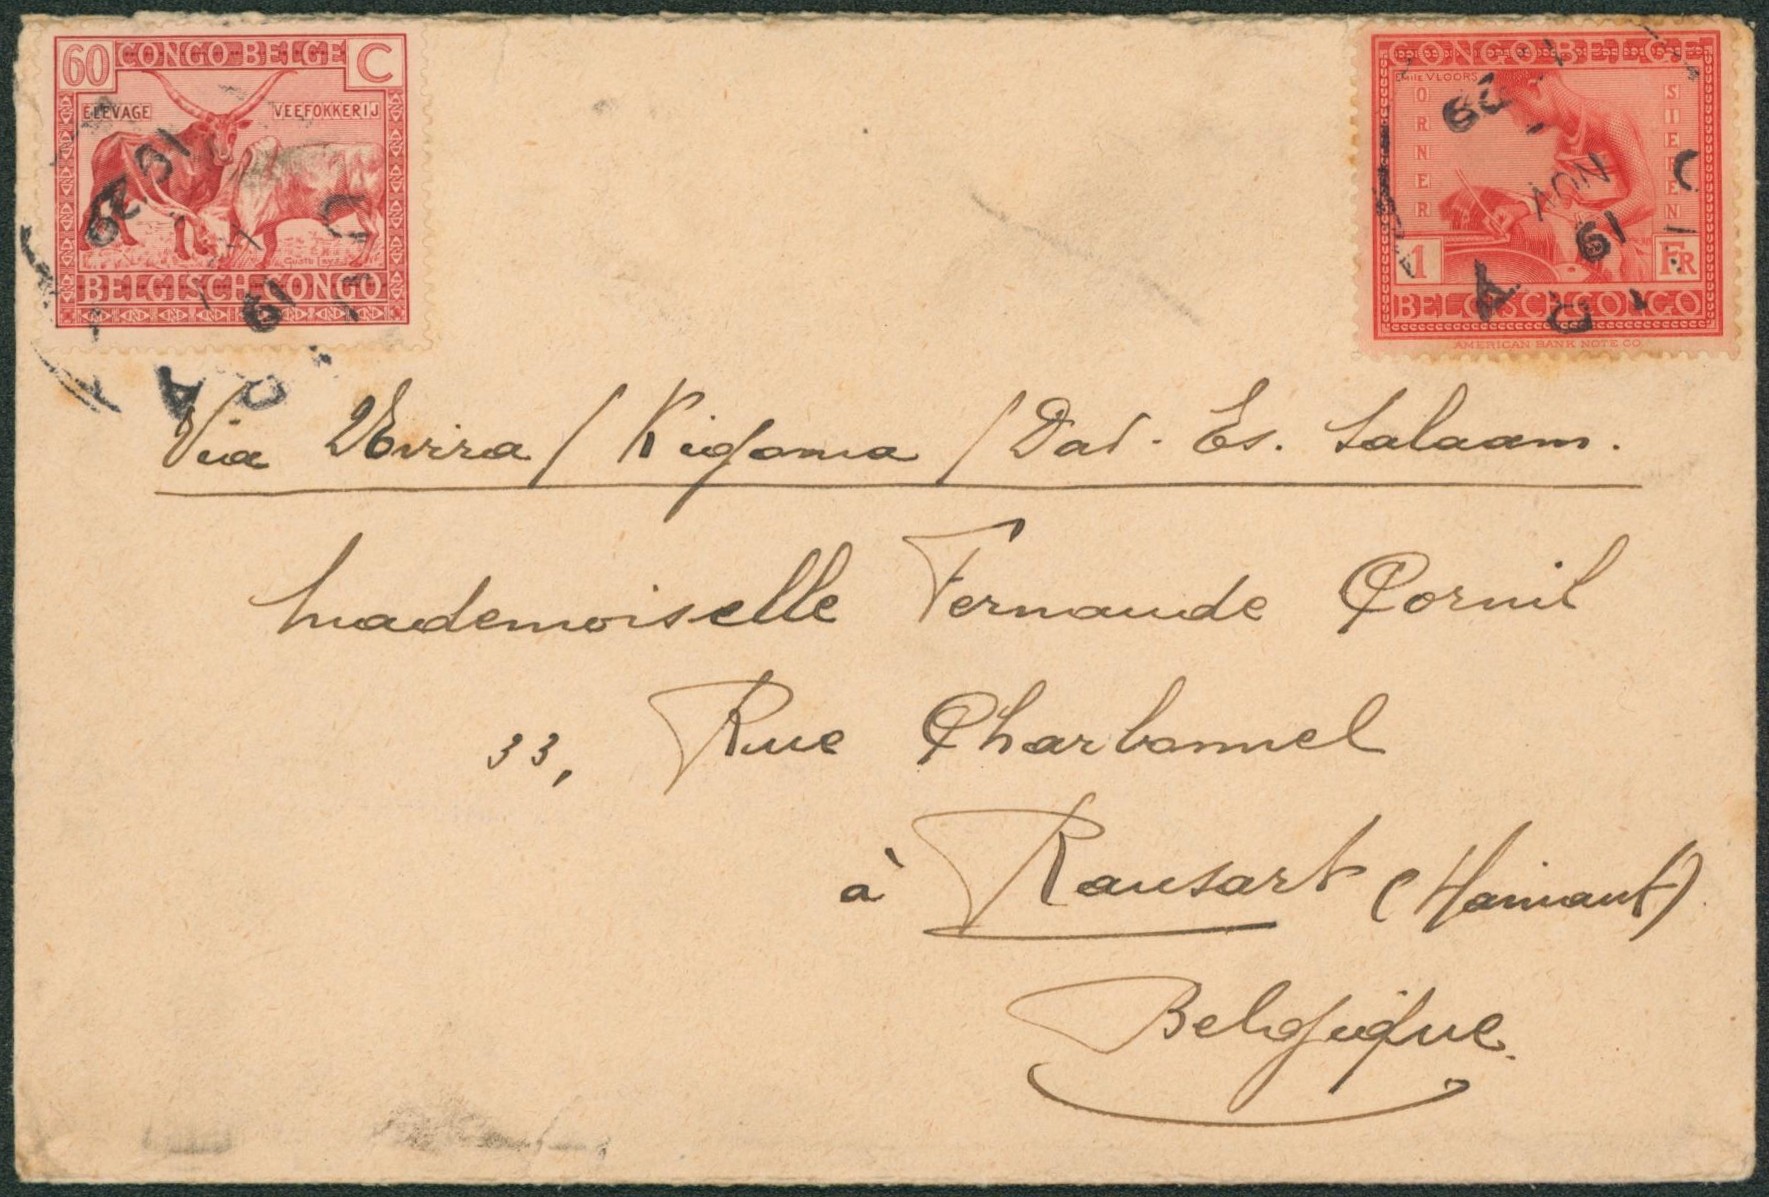 60 CONGO BELGE C
ELEVAGE VEEFOKKERIJ
BELGISCH CONGO
CONGO BELGE
EMILE VLOORS
ORNER SIEREN
1 FR
BELGISCH CONGO
AMERICAN BANK NOTE CO
29
19
29
NOV
19
Via Uvira / Kigoma / Dar. Es. Salaam.
Mademoiselle Fernande Cornil
33, Rue Charbonnel
à Ransart (Hainaut)
Belgique.